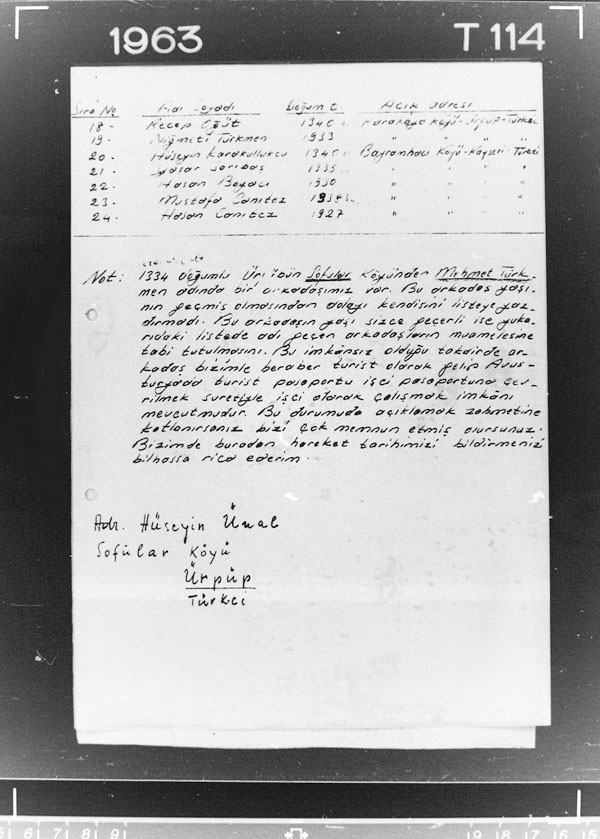 1963 T 114
Sıra No Adı Soyadı Doğum t Açık adresi
18- Recep Öğüt 1340 Karakaya Köyü-Ürgüp-Türkei
19- Niğmeti Türkmen 1933 " " "
20- Hüseyin Karakullukcu 1340 Bayramhacı Köyü-Kayseri-Türkei
21- Yaşar Sarıbaş 1335 " " "
22- Hasan Boyacı 1930 " " "
23- Mustafa Canitez " " "
24- Hasan Canitez 1927 " " "
Not: 1334 doğumlu Ürgübün Sofular Köyünden Mehmet Türk-
men adında bir arkadaşımız var. Bu arkadaş yaşı-
nın geçmiş olmasından dolayı kendisini listeye yaz-
dırmadı. Bu arkadaşın yaşı sizce geçerli ise yuka-
rıdaki listede adı geçen arkadaşların muamelesine
tabi tutulmasını. Bu imkânsız olduğu takdirde ar-
kadaş bizimle beraber turist olarak gelip Avus-
turyada turist pasaportu işçi pasaportuna çev-
rilmek suretiyle işci olarak çalışmak imkânı
mevcutmudur. Bu durumuda açıklamak zahmetine
katlanırsanız bizi çok memnun etmiş olursunuz.
Bizimde buradan hareket tarihimizi bildirmenizi
bilhassa rica ederim.
Adr. Hüseyin Ünal
Sofülar Köyü
Ürpüp
Türkei
61 71 81 91 19 18 17 16 15